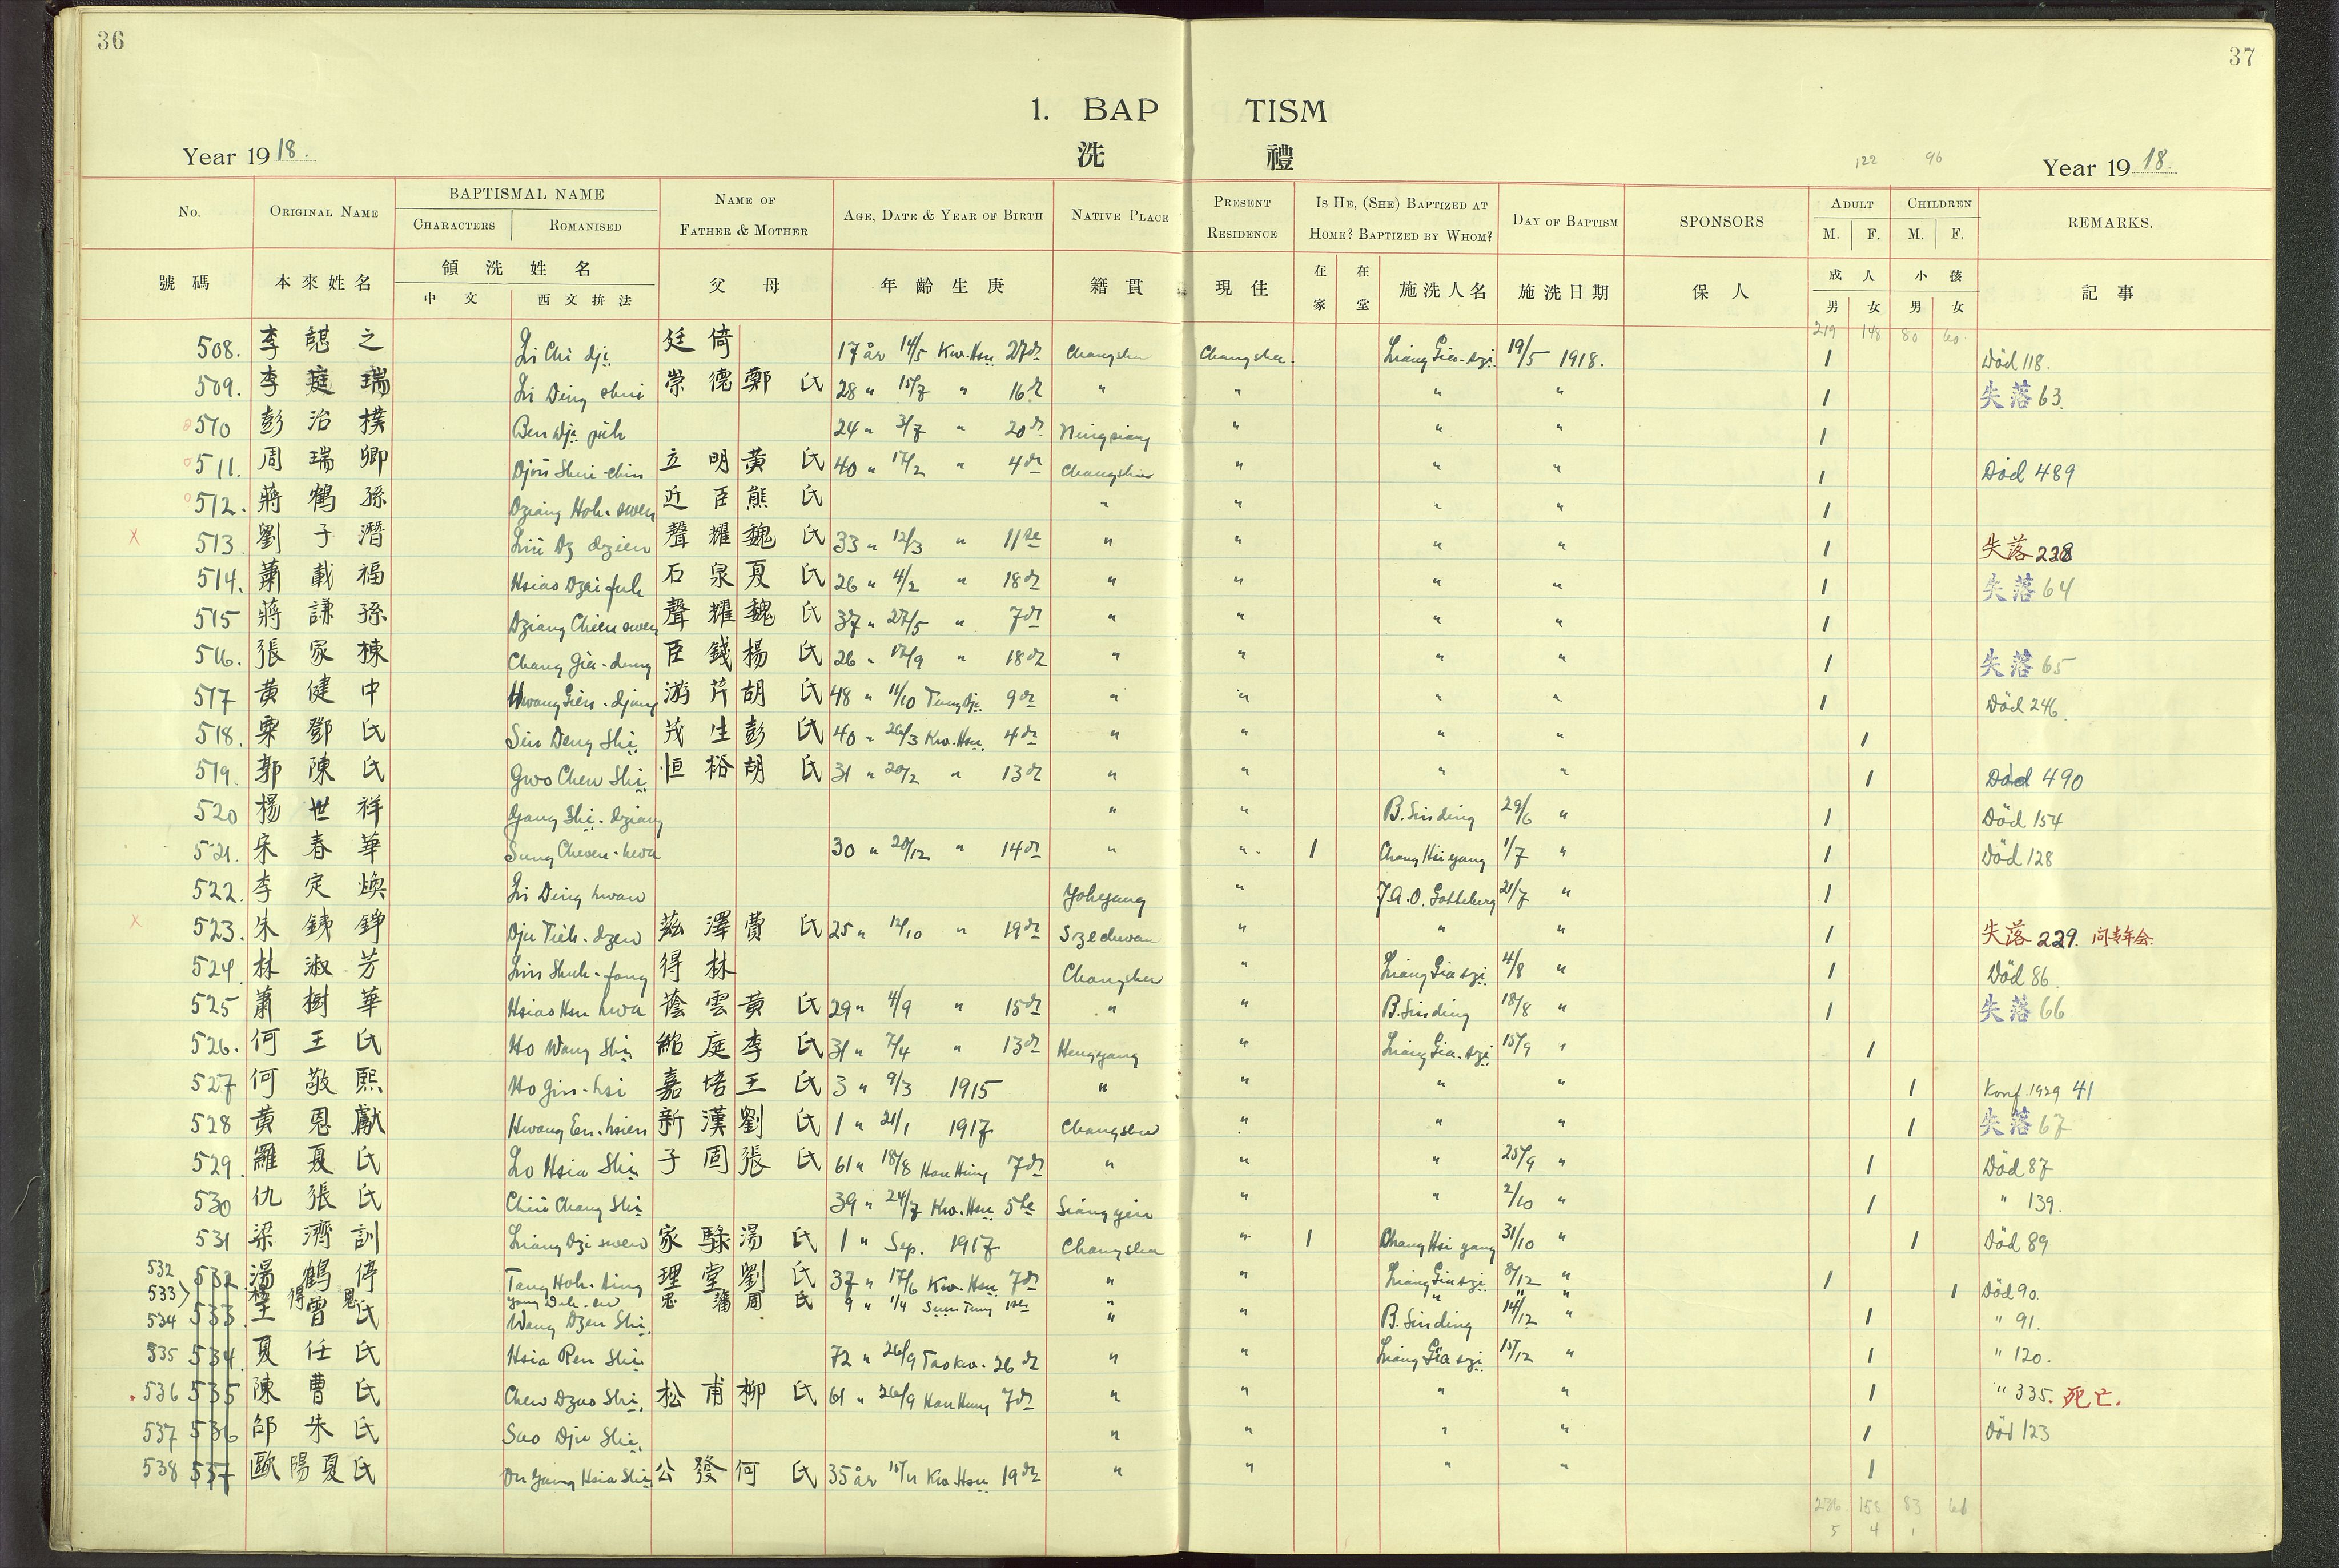 36
37
1. BAP TISM
洗 禮
Year 1918.
122 96
Year 1918.
No. ORIGINAL NAME BAPTISMAL NAME NAME OF FATHER & MOTHER AGE, DATE & YEAR OF BIRTH NATIVE PLACE PRESENT RESIDENCE IS HE, (SHE) BAPTIZED AT HOME? BAPTIZED BY WHOM? DAY OF BAPTISM SPONSORS ADULT CHILDREN REMARKS.
CHARACTERS ROMANISED M. F. M. F.
號碼 本來姓名 領洗姓名 父母 年齡生庚 籍貫 現住 在家 在堂 施洗人名 施洗日期 保人 成人 小孩 記事
中文 西文拚法 男 女 男 女
219 148 80 60
508. 李諶之 Li Chi dji 廷倚 17 år 14/5 Kw. Hsu 27de Changsha Changsha. Liang Gia-szi 19/5 1918. 1 Död 118.
509. 李庭瑞 Li Ding shui 崇德 鄭氏 28 " 15/7 " 16de " " " " 1 失落 63.
510 彭治樸 24 " 3/7 " 20de Ningsiang " " " 1
511. 周瑞卿 立明 黄氏 40 " 17/2 " 4de Changsha " " " 1 Död 489
512. 蔣鶴孫 Dziang Hoh-swen 近臣 熊氏 " " " " 1
513 劉子潛 Liu Dz dzien 聲耀 魏氏 33 " 12/3 " 11te " " " " 1 失落 228
514. 蕭載福 Hsiao Dzai fuh 石泉 夏氏 26 " 4/2 " 18de " " " " 1 失落 64
515 蔣謙孫 Dziang Chien swen 聲耀 魏氏 37 " 27/5 " 7de " " " " 1
516. 張家棟 Chang Gia-dung 臣錢 楊氏 26 " 17/9 " 18de " " " " 1 失落 65
517 黄健中 Hwang Gien-djung 游芹 胡氏 48 " 11/10 Tung Dji 9de " " " " 1 Död 246.
518. 粟鄧氏 Deng Shi 茂生 彭氏 40 " 26/3 Kw. Hsu. 4de " " " " 1
519. 郭陳氏 Gwo Chen Shi 恒裕 胡氏 31 " 20/2 " 13de " " " " 1 Död 490
520 楊世祥 Yang Shi-dziang " " B. Sinding 29/6 " 1 Död 154
521. 宋春華 Sung Chwen-hwa 30 " 20/12 " 14de " " 1 Chang Hsi yang 1/7 " 1 Död 128
522. 李定煥 Li Ding hwan Yohyang " J.A.O. Gotteberg 21/7 " 1
523. 朱鐵錚 Dju Tieh-dzen 茲澤 費氏 25 " 12/10 " 19de Szechwan " " " 1 失落 229. 问青年会.
524. 林淑芳 Lin Shuh-fang 得林 Changsha " Liang Gia szi 4/8 " 1 Död 86.
525 蕭樹華 Hsiao Hsu hwa 蔭雲 黄氏 29 " 4/9 " 15de " " B. Sinding 18/8 " 1 失落 66
526. 何王氏 Ho Wang Shi 紹庭 李氏 31 " 7/4 " 13de Hengyang " Liang Gia-szi 15/9 " 1
527 何敬熙 Ho Gin-hsi 嘉培 王氏 3 " 9/3 1915 " " " " 1 Konf. 1929 41
528 黄恩獻 Hwang En-hsien 新漢 劉氏 1 " 21/1 1917 Changsha " " " 1 失落 67
529. 羅夏氏 Lo Hsia Shi 子固 張氏 61 " 18/8 Han Hung 7de " " " 25/9 " 1 Död 87
530 仇張氏 Chiu Chang Shi 39 " 24/7 Kw. Hsu. 5te Siangyin " " 2/10 " 1 " 139.
531 梁濟訓 Liang Dzi swen 家騄 湯氏 1 " Sep. 1917 Changsha " 1 Chang Hsi yang 31/10 " 1 Död 89
532 532 湯鶴停 Tang Hoh-ting 理堂 劉氏 37 " 17/6 Kw. Hsu 7de " " Liang Gia szi 8/12 " 1
533 楊得恩 Yang Deh-en 周氏 9 " 1/4 Suen Tung 1ste " " " " 1 Död 90.
534 533. 王曾氏 Wang Dzen Shi. " " B. Sinding 14/12 " 1 " 91.
535 534. 夏任氏 Hsia Ren Shi 72 " 26/9 Taokw. 26de " " Liang Gia szi 15/12 " 1 " 120.
536 535 陳曹氏 Chen Dzao Shi. 松甫 柳氏 61 " 26/9 Han Hung 7de " " " " 1 " 335. 死亡.
537 536 邵朱氏 Sao Dju Shi. " " " " 1 Död 123
538 537 歐陽夏氏 Ou Yang Hsia Shi 公發 何氏 35 år 15/11 Kw. Hsu 19de " " " " 1
236 158 83 61
5 4 1